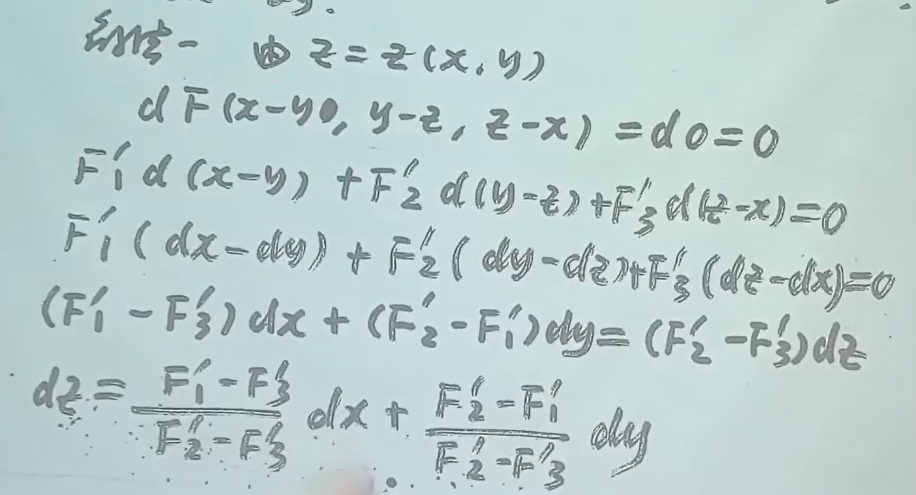 解法一 由 z = z(x, y)
dF(x-y, y-z, z-x) = d0 = 0
F₁′d(x-y) + F₂′d(y-z) + F₃′d(z-x) = 0
F₁′(dx-dy) + F₂′(dy-dz) + F₃′(dz-dx) = 0
(F₁′ - F₃′)dx + (F₂′ - F₁′)dy = (F₂′ - F₃′)dz
dz = (F₁′ - F₃′)/(F₂′ - F₃′) dx + (F₂′ - F₁′)/(F₂′ - F₃′) dy